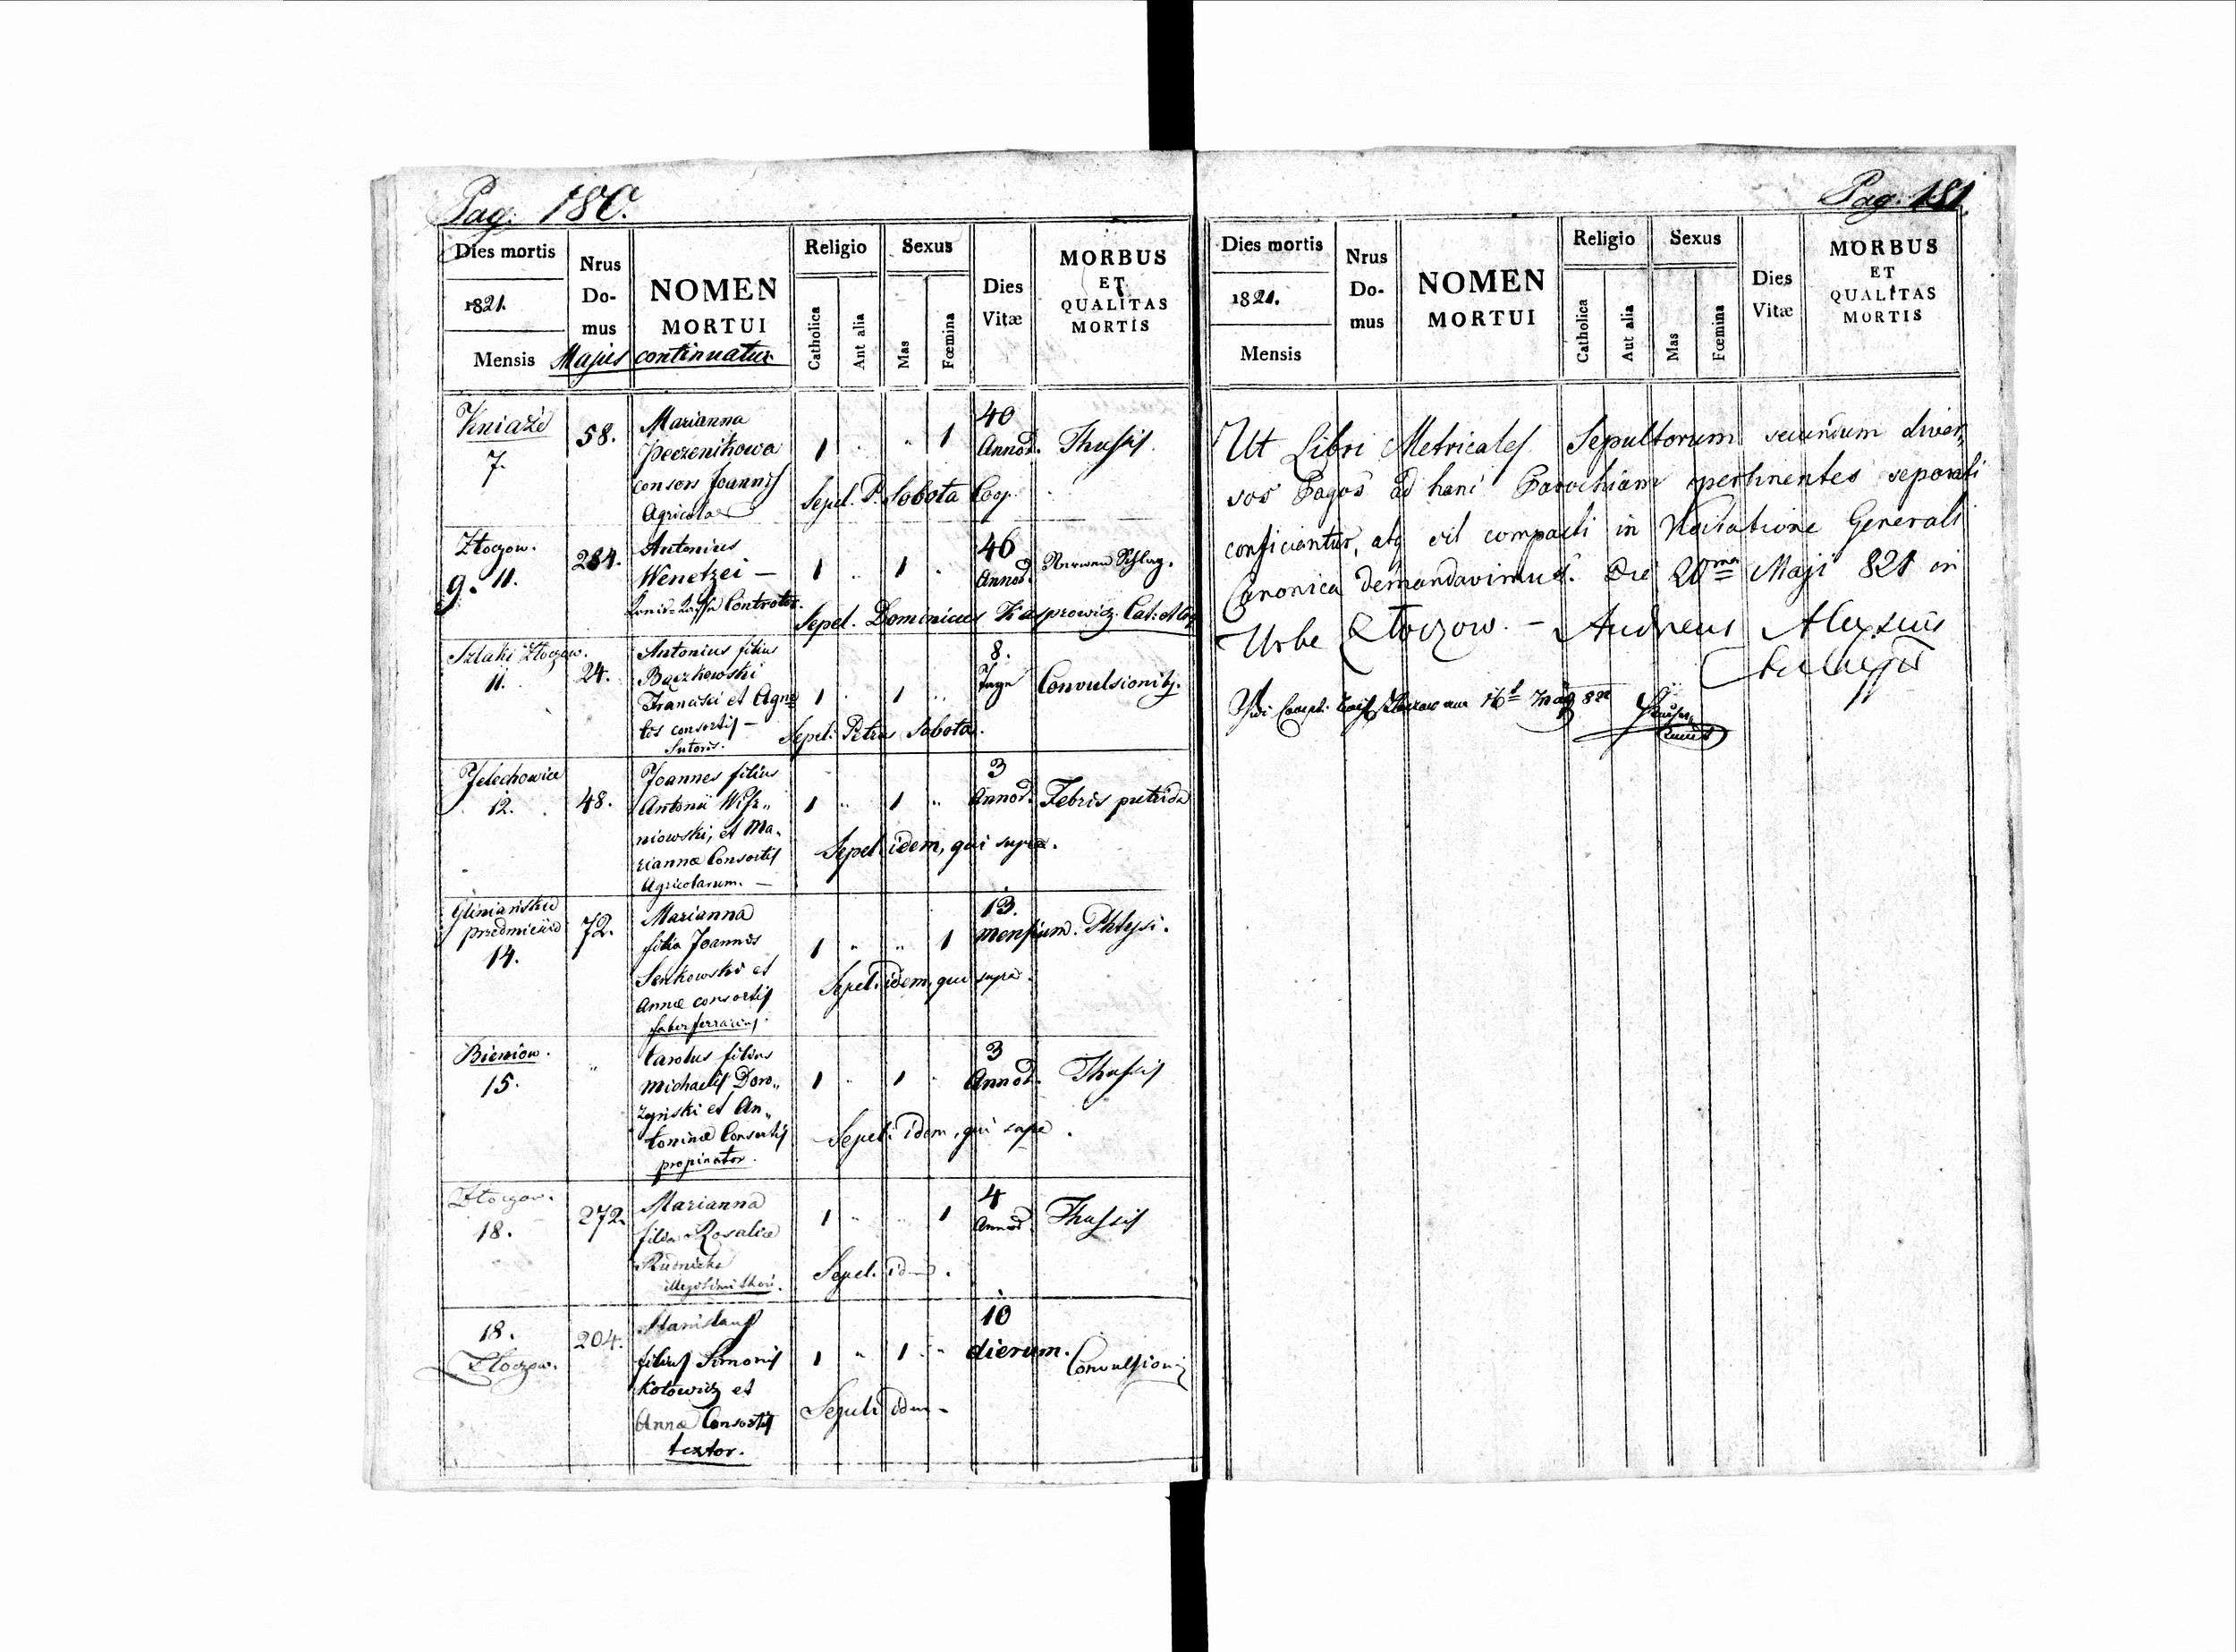 Pag. 180.
Dies mortis
1821.
Mensis
Nrus
Do-
mus
NOMEN
MORTUI
Majus continuatur
Religio
Catholica
Aut alia
Sexus
Mas
Fœmina
Dies
Vitæ
MORBUS
ET
QUALITAS
MORTIS
Kniaże
7.
58.
Marianna
Peczenikowa
consors Joannis
Agricolae
1 " " 1
40
Annor.
Thussis.
Sepel. P. Sobota Coop.
Złoczow.
9. 11.
284.
Antonius
Wenetzei —
Kreis-Kassa Controlor.
1 " 1 "
46
Annor.
Nerwen Schlag.
Sepel. Dominicus Kasprowicz. Cat:
Szlaki Złoczow.
11.
24.
Antonius filius
Bączkowski
Francisci et Agne
tis consortis —
Sutoris.
1 " 1 "
8.
Tage
Convulsionib.
Sepel. Petrus Sobota.
Jelechowice
12.
48.
Joannes filius
Antonii Wisz„
niowski, et Ma„
riannæ Consortis
Agricolarum. —
1 " 1 "
3
Annor.
Febris putrida
Sepel. idem, qui supra.
Gliniańskie
przedmieście
14.
72.
Marianna
filia Joannis
Senkowski et
Annæ consortis
faber ferrarius.
1 " " 1
13.
Mensium.
Phtysi.
Sepel. idem, qui supra.
Bieniow.
15.
"
Carolus filius
Michaelis Doro„
żyński et An„
toninæ Consortis
propinator.
1 " 1 "
3
Annor.
Thussis
Sepel. idem, qui supra.
Złoczow.
18.
272.
Marianna
filia Rosaliæ
Rudnicka
illegitimi thori.
1 " " 1
4
Annor.
Thussis
Sepel. idem.
18.
Złoczow.
204.
Stanislaus
filius Simonis
Kotowicz et
Annæ Consortis
textor.
1 " 1 "
10
dierum.
Convulsioni
Sepeli idem -
Pag. 181.
Dies mortis
1821.
Mensis
Nrus
Do-
mus
NOMEN
MORTUI
Religio
Catholica
Aut alia
Sexus
Mas
Fœmina
Dies
Vitæ
MORBUS
ET
QUALITAS
MORTIS
Ut Libri Metricales Sepultorum secundum diver„
sos Pagos ad hanc Parochiam pertinentes separati
conficiantur, atq compacti in Visitatione Generali
Canonica demandavimus. Die 20ma Maji 821 in
Urbe Złoczow. — Andreas Alexius